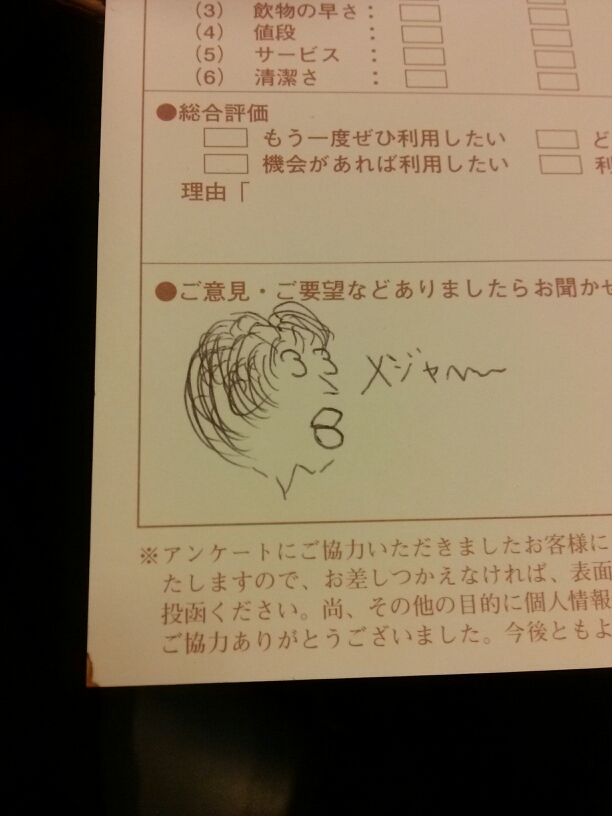 (3) 飲物の早さ：
(4) 値段 ：
(5) サービス ：
(6) 清潔さ ：
●総合評価
もう一度ぜひ利用したい ど
機会があれば利用したい 利
理由「
●ご意見・ご要望などありましたらお聞かせ
メジャ〜〜
※アンケートにご協力いただきましたお客様に
たしますので、お差しつかえなければ、表面
投函ください。尚、その他の目的に個人情報
ご協力ありがとうございました。今後ともよ